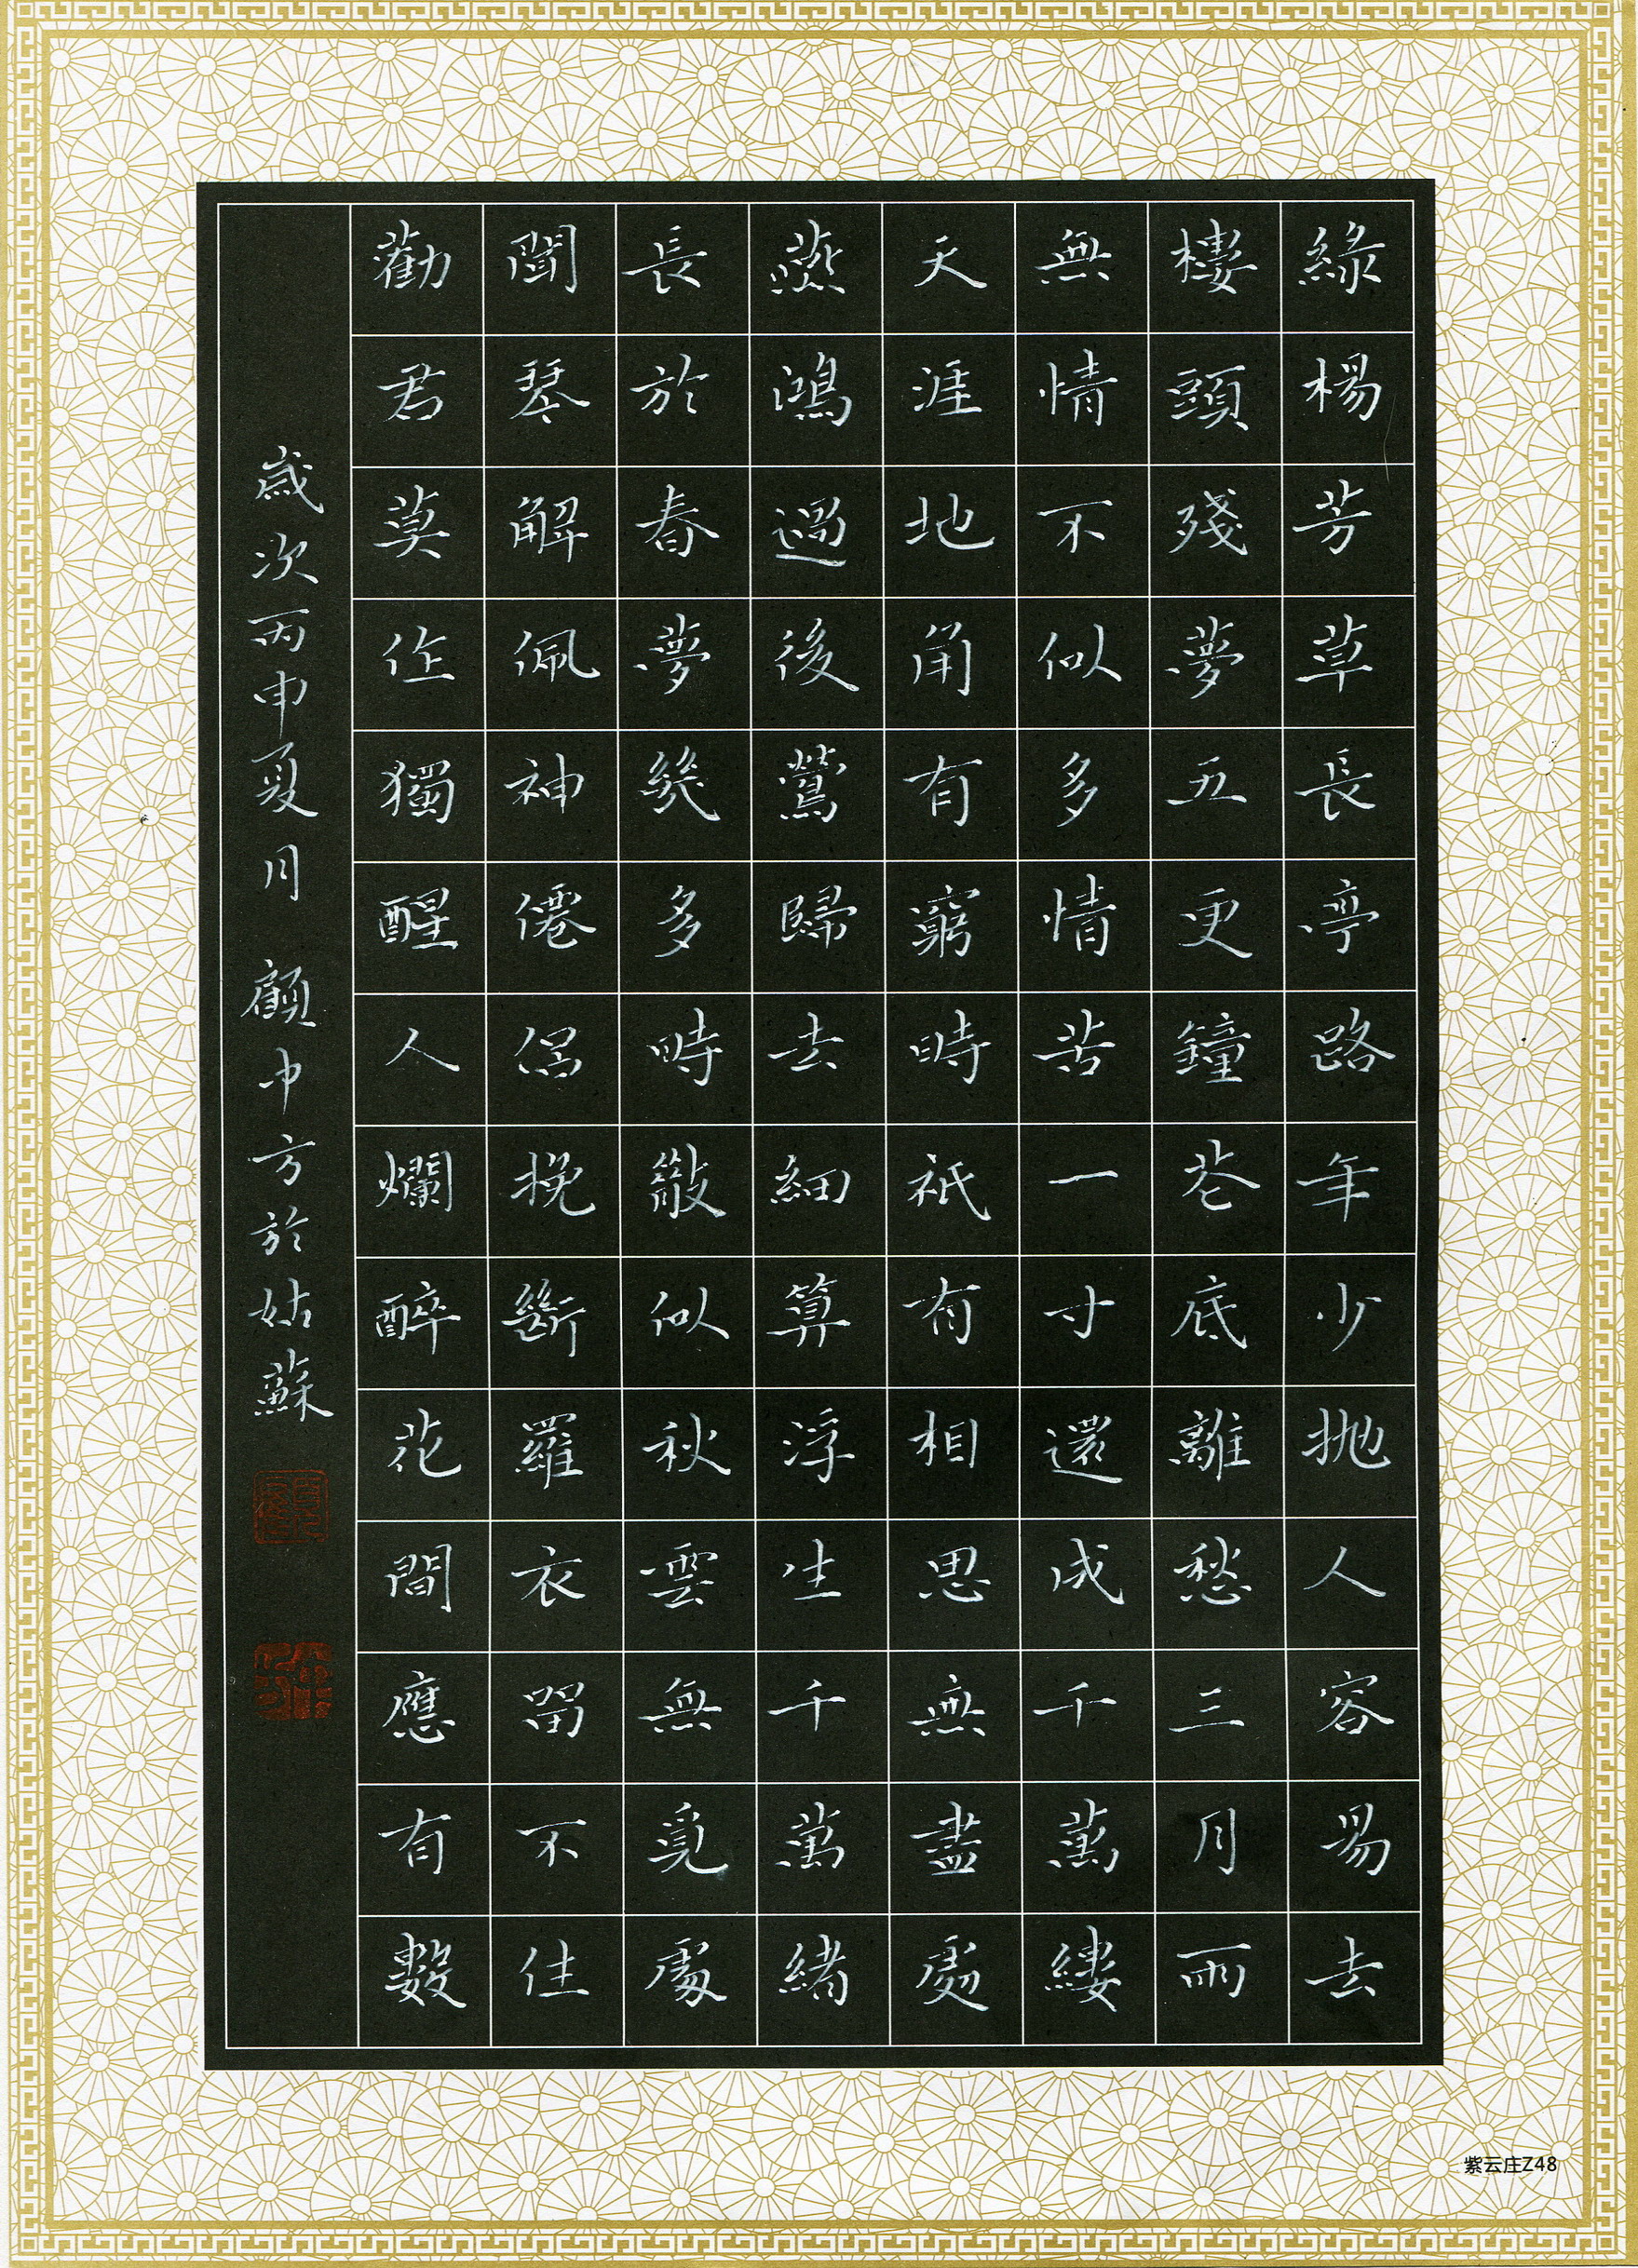 綠楊芳草長亭路年少拋人容易去
樓頭殘夢五更鐘花底離愁三月雨
無情不似多情苦一寸還成千萬縷
天涯地角有窮時祇有相思無盡處
燕鴻過後鶯歸去細算浮生千萬緒
長於春夢幾多時散似秋雲無覓處
聞琴解佩神僊侶挽斷羅衣留不住
勸君莫作獨醒人爛醉花間應有數
歲次丙申夏月 顧中方於姑蘇
紫云庄Z48